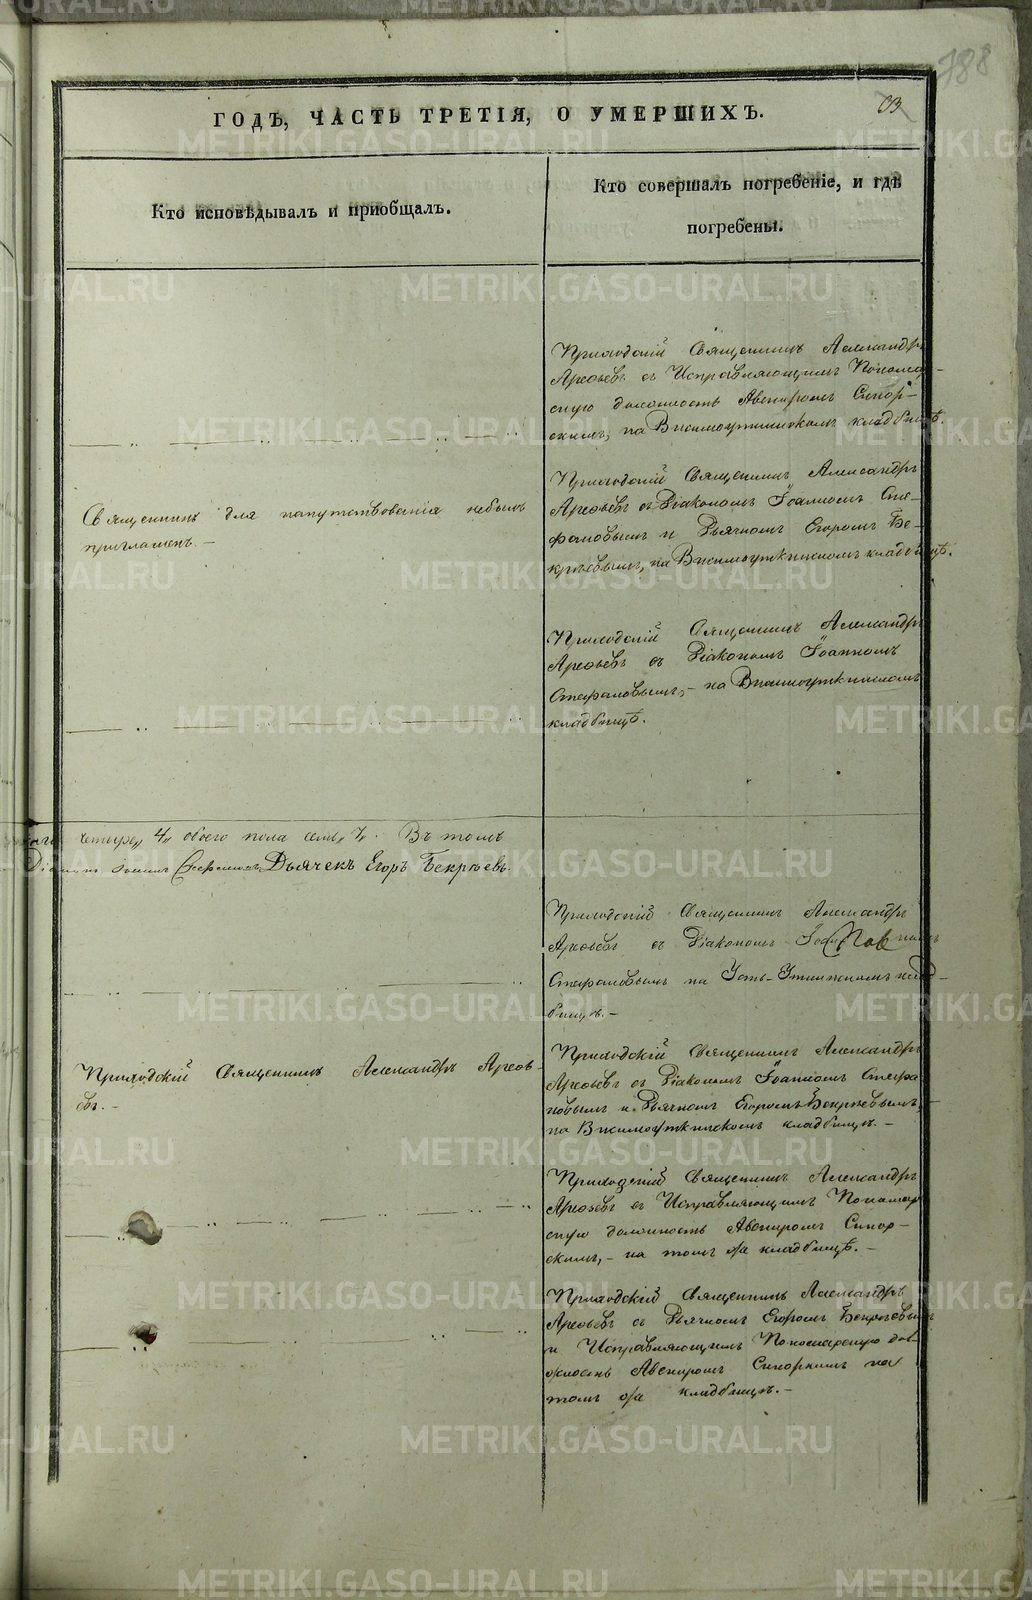 188
ГОДЪ, ЧАСТЬ ТРЕТІЯ, О УМЕРШИХЪ.
Кто исповѣдывалъ и приобщалъ.
Кто совершалъ погребеніе, и гдѣ
погребены.
Приходскій Священникъ Александръ
Арефьевъ съ Исправляющимъ Понамар-
скую должность Авениромъ Сикор-
скимъ, на Висимоуткинскомъ кладбищѣ.
Священникъ для напутствованія небылъ
приглашенъ. —
Приходскій Священникъ Александръ
Арефьевъ съ Діакономъ Іоанномъ Сте-
фановымъ и Дьячкомъ Егоромъ Бе-
крѣевымъ, на Висимоуткинскомъ кладбищѣ.
Приходскій Священникъ Александръ
Арефьевъ съ Діакономъ Іоанномъ
Стефановымъ, — на Висимоуткинскомъ
кладбищѣ.
четыре „4„ обоего пола семь „7„. Въ томъ
Дьячекъ Егоръ Бекрѣевъ.
Приходскій Священникъ Александръ
Арефьевъ съ Діакономъ
Стефановымъ на Усть-Уткинскомъ клад-
бищѣ. —
Приходскій Священникъ Александръ Арефь-
евъ. —
Приходскій Священникъ Александръ
Арефьевъ съ Діакономъ Іоанномъ Стефа-
новымъ и Дьячкомъ Егоромъ Бекрѣевымъ,
на Висимоуткинскомъ кладбищѣ. —
Приходскій Священникъ Александръ
Арефьевъ съ Исправляющимъ Понамар-
скую должность Авениромъ Сикор-
скимъ, — на томъ же кладбищѣ. —
Приходскій Священникъ Александръ
Арефьевъ съ Дьячкомъ Егоромъ Бекрѣевымъ
и Исправляющимъ Пономарскую дол-
жность Авениромъ Сикорскимъ на
томъ же кладбищѣ. —
METRIKI.GASO-URAL.RU